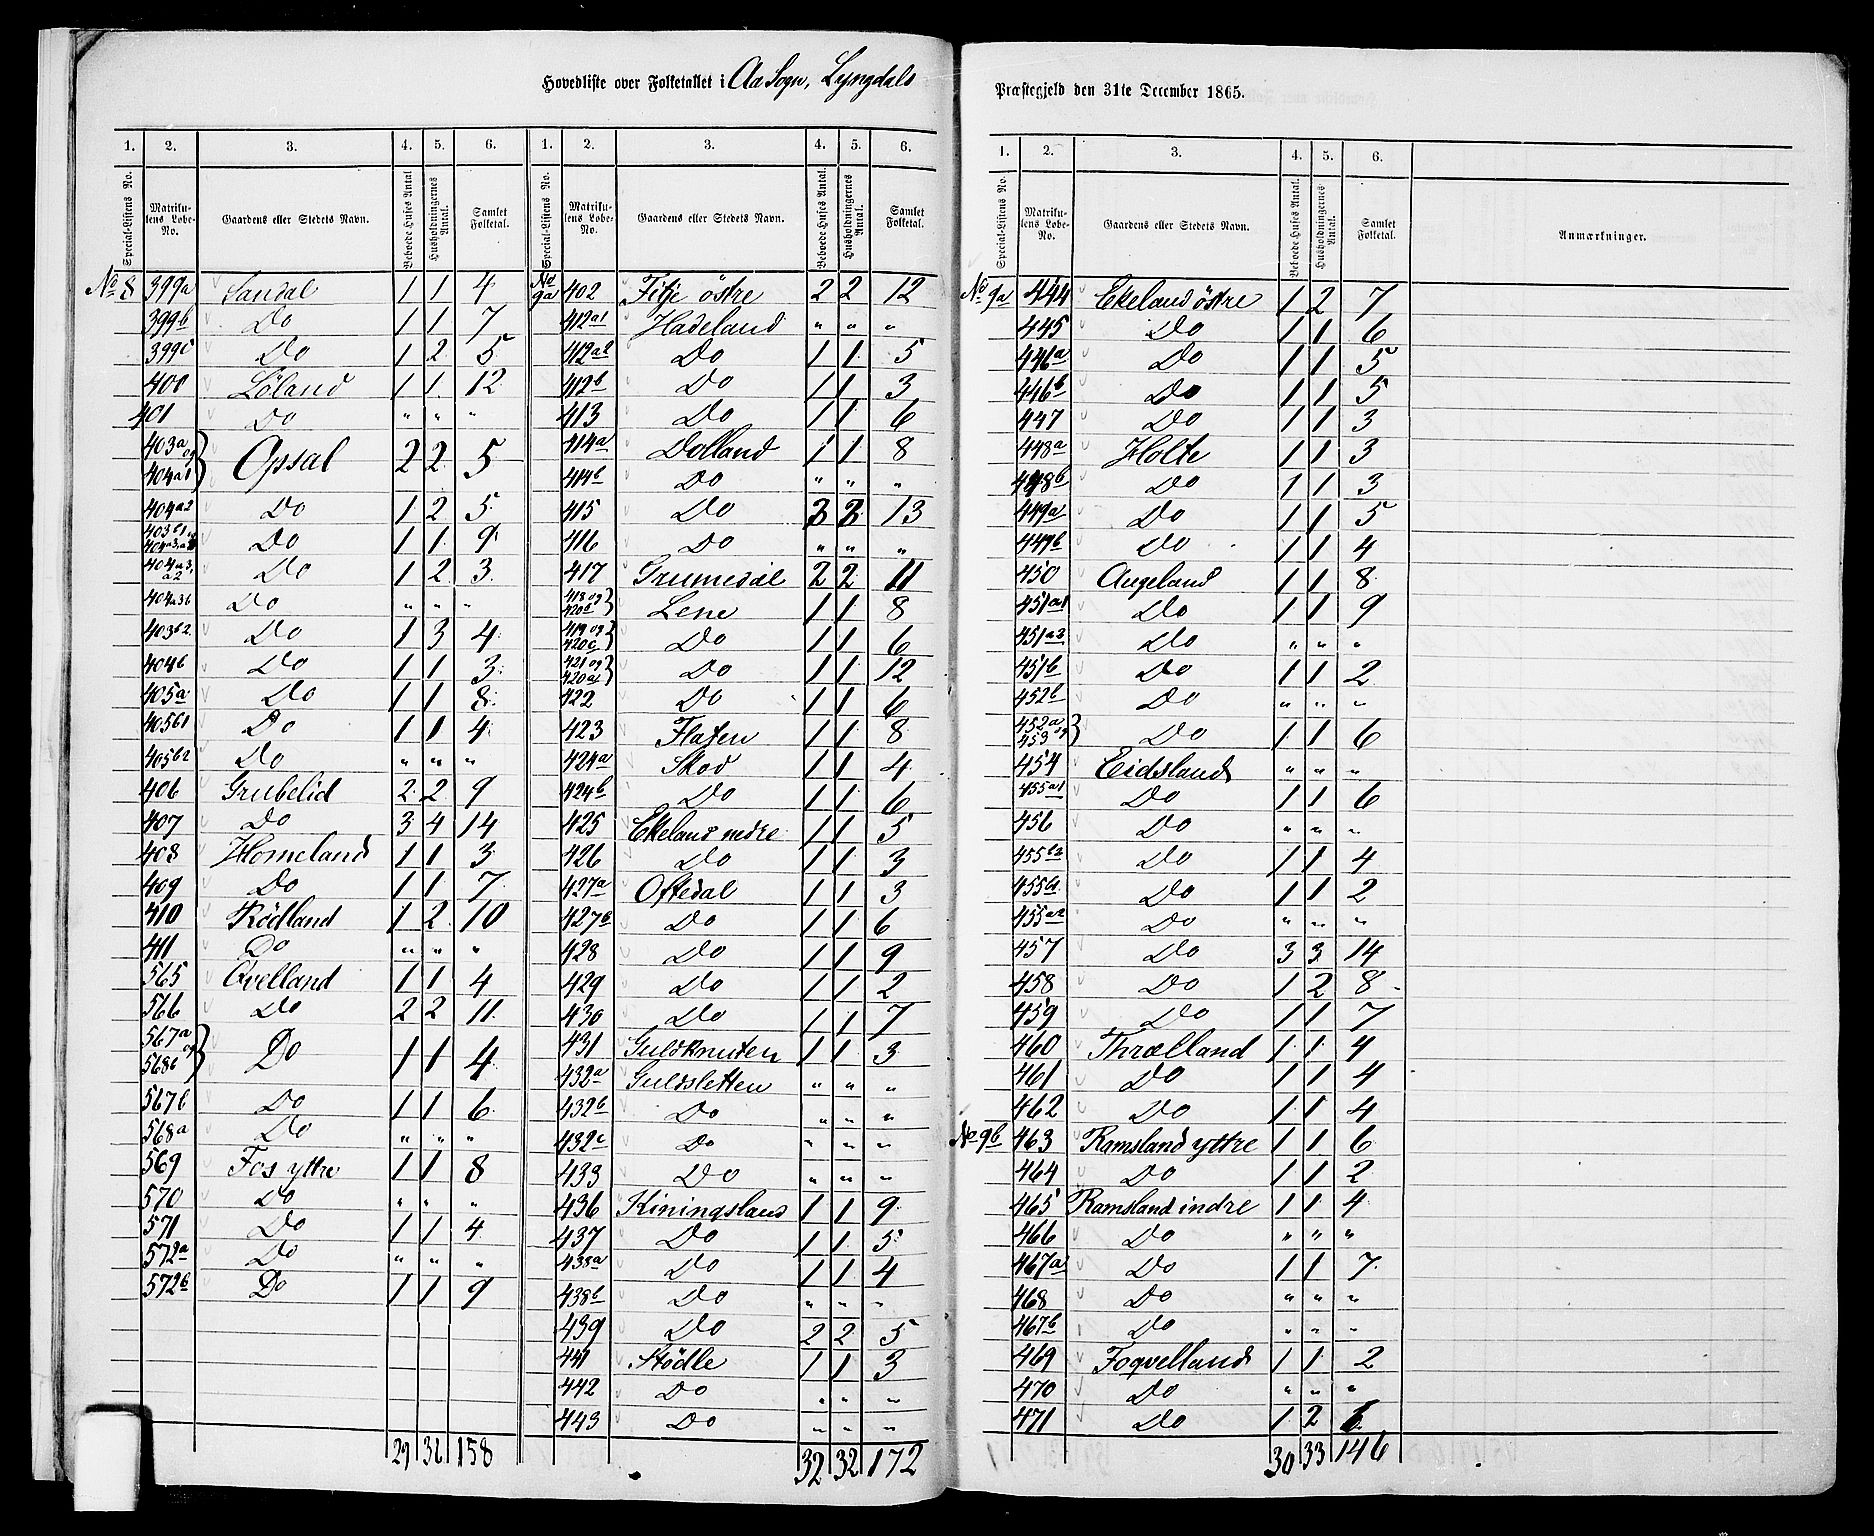 Hovedliste over Folketallet i Aa Sogn, Lyngdals
1. 2. 3. 4. 5. 6.
Special-Listens No. Matrikulens Løbe-No. Gaardens eller Stedets Navn. Beboede Huses Antal. Husholdningernes Antal. Samlet Folketal.
No 8 399a Sandal 1 1 4
399b Do 1 1 7
399c Do 1 2 5
400 Løland 1 1 12
401 Do " " "
403a og 404a1 Opsal 2 2 5
404a2 Do 1 2 5
Do 1 1 9
404a3, a2 Do 1 2 3
404a3b Do " " "
403b2 Do 1 3 4
404b Do 1 1 3
405a Do 1 1 8
405b1 Do 1 1 4
405b2 Do " " "
406 Grubelid 2 2 9
407 Do 3 4 14
408 Homeland 1 1 3
409 Do 1 1 7
410 Rödland 1 2 10
411 Do " " "
565 Qvelland 1 1 4
566 Do 2 2 11
567a og 568b Do 1 1 4
567b Do 1 1 6
568a Do " " "
569 Fos yttre 1 1 8
570 Do " " "
571 Do 1 1 4
572a Do " " "
572b Do 1 1 9
29 36 158
1. 2. 3. 4. 5. 6.
Special-Listens No. Matrikulens Løbe-No. Gaardens eller Stedets Navn. Beboede Huses Antal. Husholdningernes Antal. Samlet Folketal.
No 9a 402 Filje östre 2 2 12
412a1 Hadeland " " "
412a2 Do 1 1 5
412b Do 1 1 3
413 Do 1 1 6
414a Dolland 1 1 8
414b Do " " "
415 Do 2 2 13
416 Do " " "
417 Grumedal 2 2 11
418 og 420b Lene 1 1 8
419 og 420c Do 1 1 6
421 og 420a Do 1 1 12
422 Do 1 1 6
423 Flaten 1 1 8
424a Skod 1 1 4
424b Do 1 1 6
425 Ekeland nedre 1 1 5
426 Do 1 1 3
427a Oftedal 1 1 3
427b Do 1 1 6
428 Do 1 1 9
429 Do 1 1 2
430 Do 1 1 7
431 Guldknuten 1 1 3
432a Guldsletten " " "
432b Do " " "
432c Do " " "
433 Do " " "
436 Kiningsland 1 1 9
437 Do 1 1 5
438a Do 1 1 4
438b Do " " "
439 Do 2 2 5
441 Stödle 1 1 3
442 Do " " "
443 Do " " "
32 32 172
Præstegjeld den 31te December 1865.
1. 2. 3. 4. 5. 6.
Special-Listens No. Matrikulens Løbe-No. Gaardens eller Stedets Navn. Beboede Huses Antal. Husholdningernes Antal. Samlet Folketal. Anmærkninger.
No 9a 444 Ekeland östre 1 2 7
445 Do 1 1 6
446a Do 1 1 5
446b Do 1 1 5
447 Do 1 1 3
448a Holte 1 1 3
448b Do 1 1 3
449a Do 1 1 5
449b Do 1 1 4
450 Augeland 1 1 8
451a1 Do 1 1 9
451a2 Do " " "
451b Do 1 1 2
452b Do " " "
452a og 453 Do 1 1 6
454 Eidsland " " "
455a1 Do 1 1 6
456 Do " " "
455b2 Do 1 1 4
Do 1 1 2
455a2 Do " " "
457 Do 3 3 14
458 Do 1 2 8
459 Do 1 1 7
460 Thrælland 1 1 4
461 Do 1 1 4
462 Do 1 1 4
No 9b 463 Ramsland yttre 1 1 6
464 Do 1 1 2
465 Ramsland indre 1 1 4
466 Do " " "
467a Do 1 1 7
468 Do " " "
467b Do " " "
469 Foqvelland 1 1 2
470 Do " " "
471 Do 1 2 6
30 33 146